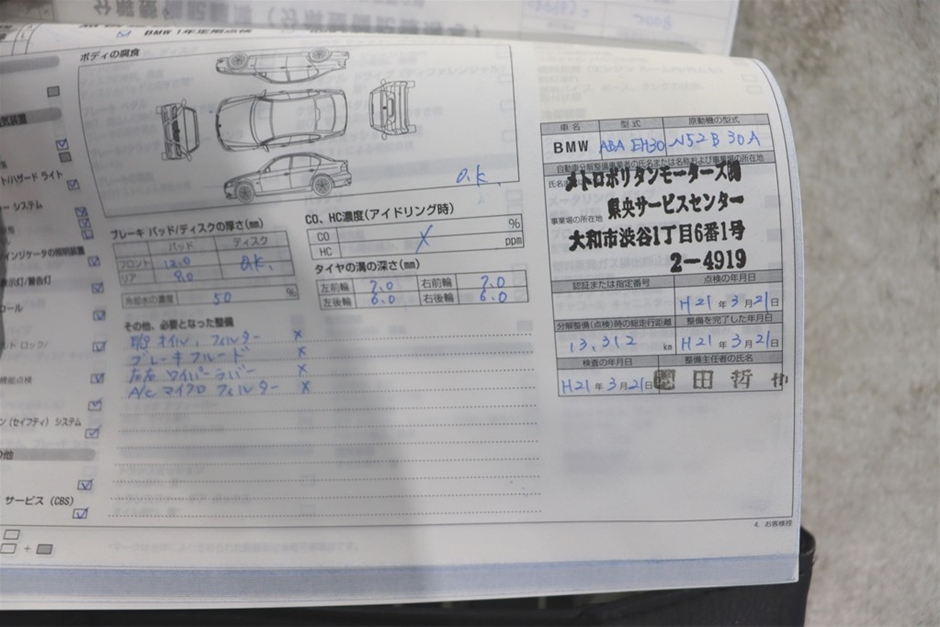 BMW 1年定期点検
ボディの腐食
O.K.
ト/ハザード ライト
ー システム
インジケータの照明装置
表示灯/警告灯
コール
ント ロック/
機能点検
ン (セイフティ) システム
の他
サービス (CBS)
ブレーキ パッド/ディスクの厚さ(mm)
パッド ディスク
フロント 12.0 O.K.
リア 8.0
冷却水の濃度 50 %
CO、HC濃度(アイドリング時)
CO %
HC ppm
タイヤの溝の深さ(mm)
左前輪 7.0 右前輪 7.0
左後輪 6.0 右後輪 6.0
その他、必要となった整備
オイル、フィルター ×
ブレーキ フルード ×
左右 ワイパー ラバー ×
A/C マイクロ フィルター ×
車名 型式 原動機の型式
BMW ABA EH30 N52B30A
自動車分解整備事業者の氏名または名称および事業場の所在地
メトロポリタンモーターズ㈱
県央サービスセンター
事業場の所在地
大和市渋谷1丁目6番1号
2-4919
認証または指定番号 点検の年月日
H21年3月21日
分解整備(点検)時の総走行距離 整備を完了した年月日
13,312 km H21年3月21日
検査の年月日 整備主任者の氏名
H21年3月21日 田 哲
4. お客様控